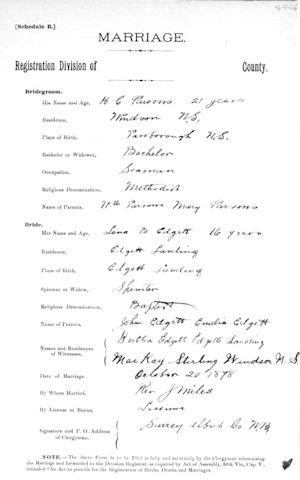 [Schedule B.]
MARRIAGE.
Registration Division of County.
Bridegroom.
His Name and Age, H C Parsons 21 years
Residence, Windsor N.S.
Place of Birth, Parsborough N.S.
Bachelor or Widower, Bachelor
Occupation, Seaman
Religious Denomination, Methodist
Name of Parents, Wm Parsons Mary Parsons
Bride.
Her Name and Age, Lena B Edgett 16 years
Residence, Edgett Landing
Place of Birth, Edgett Landing
Spinster or Widow, Spinster
Religious Denomination, Baptist
Name of Parents, John Edgett Emelia Edgett
Names and Residences of Witnesses, Bertha Edgett Edgetts Landing
MacKay Sterling Windsor N.S
Date of Marriage, October 20 1898
By Whom Married, Rev J Miles
By License or Banns, License
Signature and P. O. Address of Clergyman, Surrey Albert Co N.B.
NOTE.—The above Form is to be filled in fully and accurately by the Clergyman solemnizing
the Marriage and forwarded to the Division Registrar, as required by Act of Assembly, 50th Vic., Cap. V.,
intituled "An Act to provide for the Registration of Births, Deaths and Marriages.